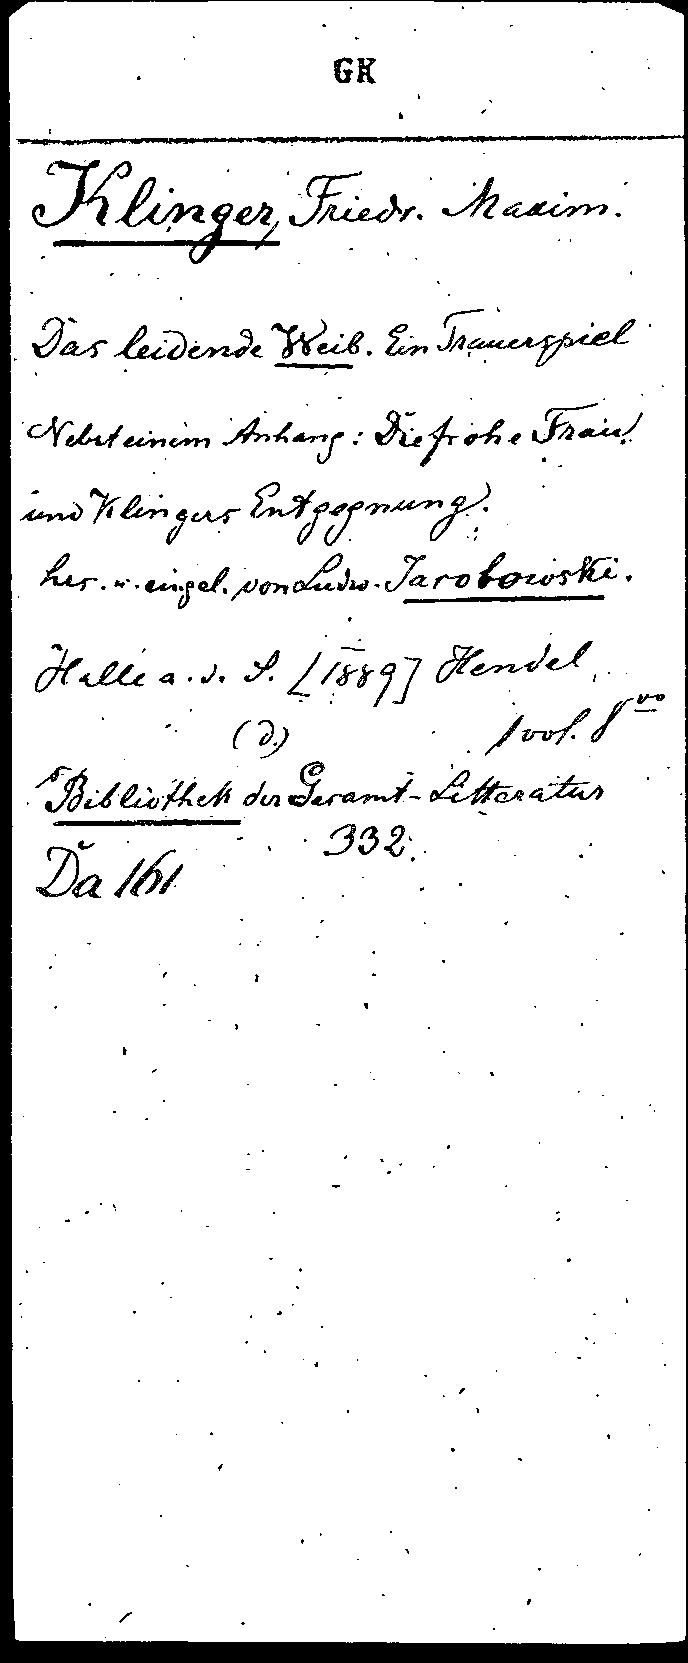 GK
Klinger, Friedr. Maxim.
Das leidende Weib. Ein Trauerspiel
Nebst einem Anhang: Die frohe Frau
und Klingers Entgegnung.
hrs. u. eingel. von Ludw. Jacobowski.
Halle a. d. S. [1889] Hendel
(d.) 1 vol. 8vo
Bibliothek der Gesamt-Litteratur
332.
Da 161